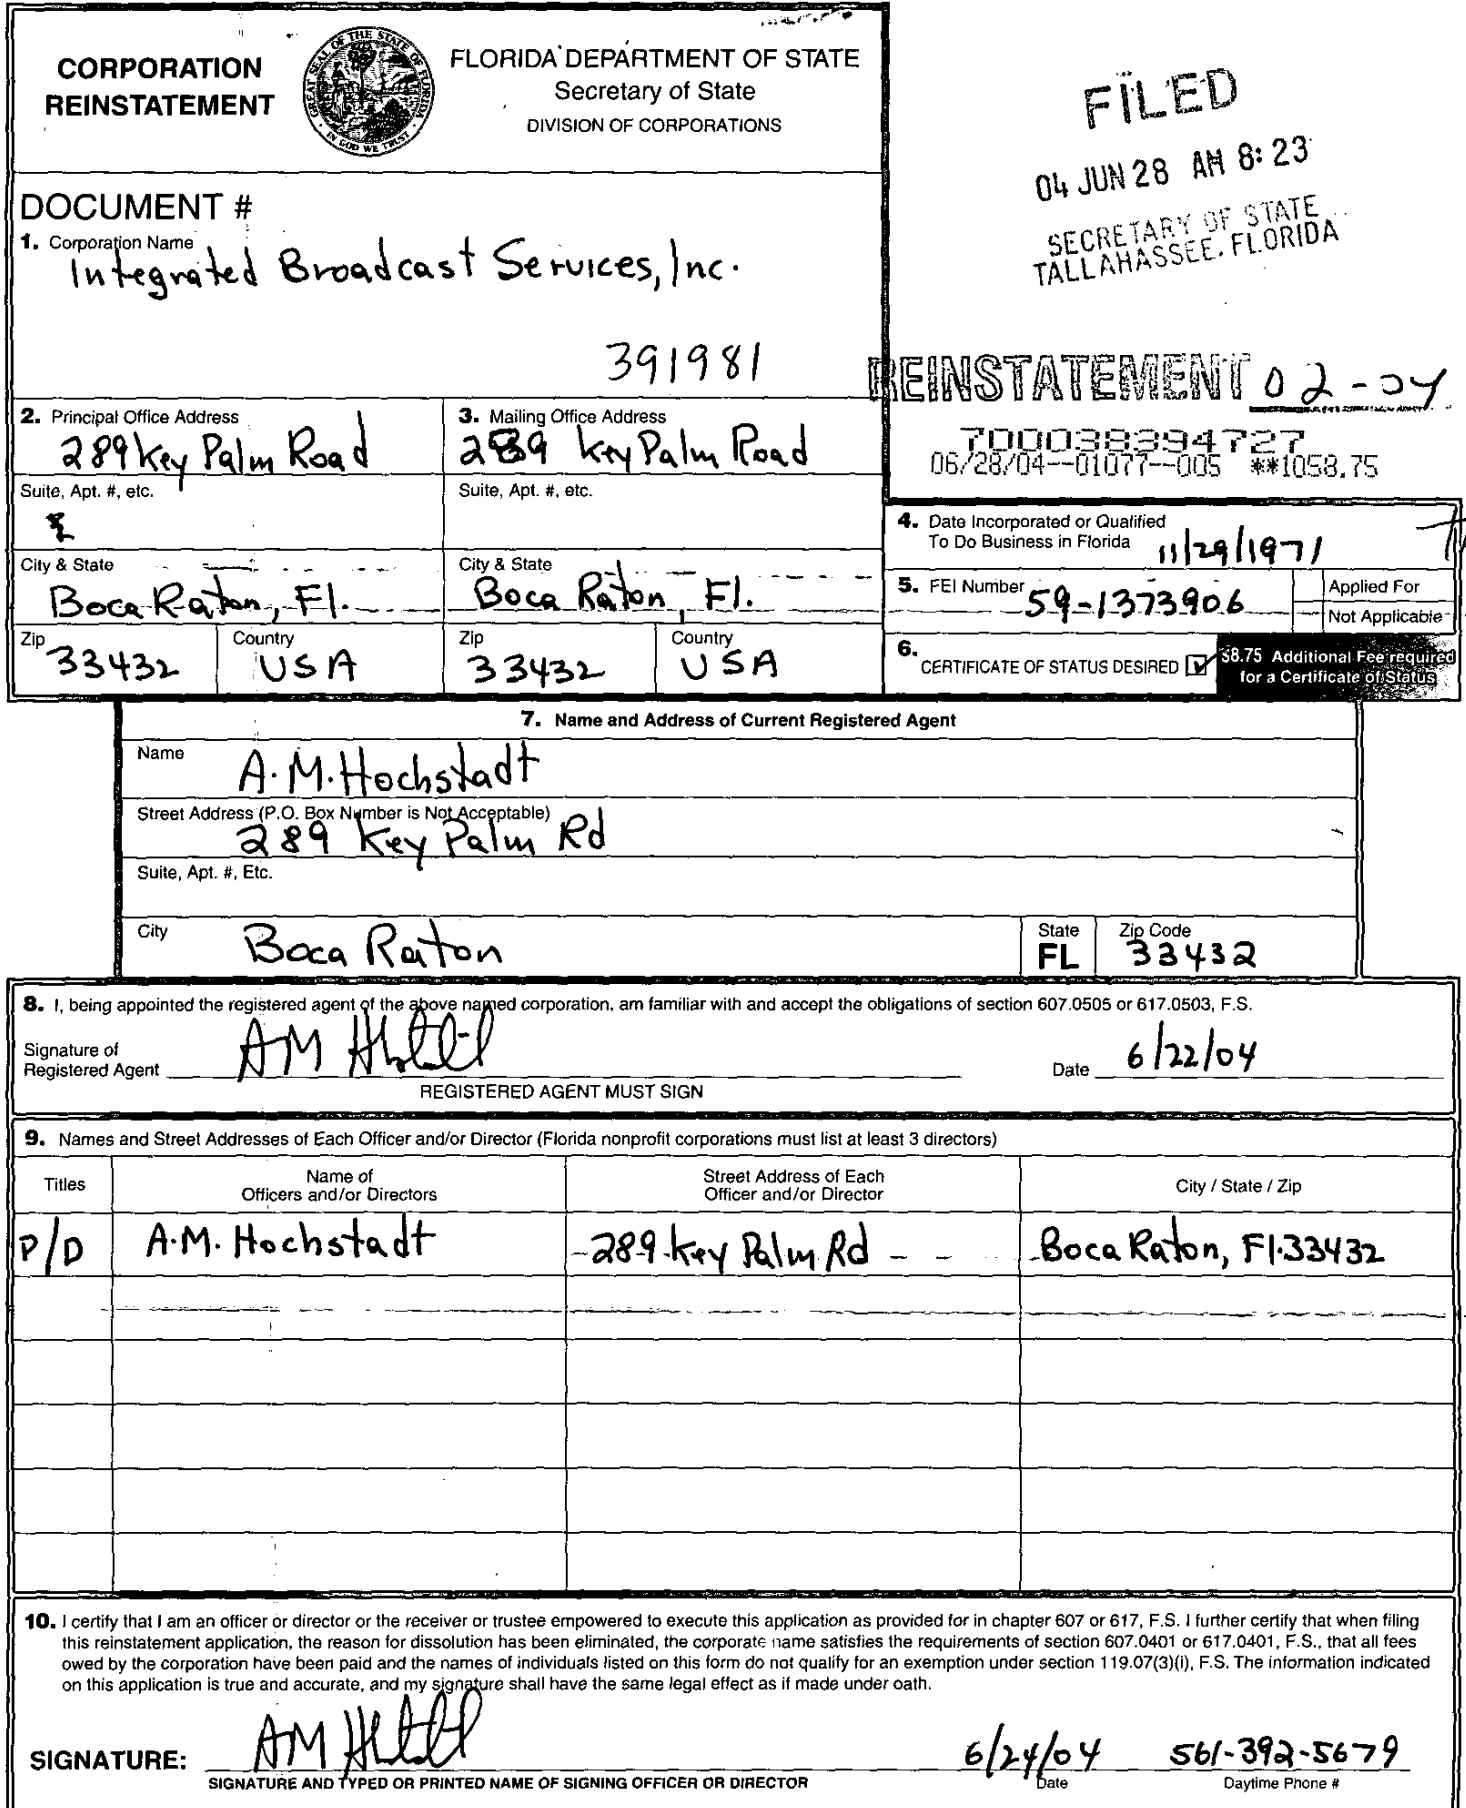 CORPORATION
REINSTATEMENT
GREAT SEAL OF THE STATE OF FLORIDA
IN GOD WE TRUST
FLORIDA DEPARTMENT OF STATE
Secretary of State
DIVISION OF CORPORATIONS
FILED
04 JUN 28 AM 8:23
SECRETARY OF STATE
TALLAHASSEE, FLORIDA
DOCUMENT #
1. Corporation Name
Integrated Broadcast Services, Inc.
391981
REINSTATEMENT 02-04
700038394727
06/28/04--01077--005 **1058.75
2. Principal Office Address
289 Key Palm Road
Suite, Apt. #, etc.
City & State
Boca Raton, Fl.
Zip
33432
Country
USA
3. Mailing Office Address
289 Key Palm Road
Suite, Apt. #, etc.
City & State
Boca Raton, Fl.
Zip
33432
Country
USA
4. Date Incorporated or Qualified
To Do Business in Florida 11/29/1971
5. FEI Number 59-1373906
Applied For
Not Applicable
6. CERTIFICATE OF STATUS DESIRED
$8.75 Additional Fee required
for a Certificate of Status
7. Name and Address of Current Registered Agent
Name
A.M. Hochstadt
Street Address (P.O. Box Number is Not Acceptable)
289 Key Palm Rd
Suite, Apt. #, Etc.
City
Boca Raton
State
FL
Zip Code
33432
8. I, being appointed the registered agent of the above named corporation, am familiar with and accept the obligations of section 607.0505 or 617.0503, F.S.
Signature of
Registered Agent
Date 6/22/04
REGISTERED AGENT MUST SIGN
9. Names and Street Addresses of Each Officer and/or Director (Florida nonprofit corporations must list at least 3 directors)
Titles
Name of
Officers and/or Directors
Street Address of Each
Officer and/or Director
City / State / Zip
P/D A.M. Hochstadt 289 Key Palm Rd Boca Raton, Fl. 33432
10. I certify that I am an officer or director or the receiver or trustee empowered to execute this application as provided for in chapter 607 or 617, F.S. I further certify that when filing
this reinstatement application, the reason for dissolution has been eliminated, the corporate name satisfies the requirements of section 607.0401 or 617.0401, F.S., that all fees
owed by the corporation have been paid and the names of individuals listed on this form do not qualify for an exemption under section 119.07(3)(i), F.S. The information indicated
on this application is true and accurate, and my signature shall have the same legal effect as if made under oath.
SIGNATURE:
6/24/04 561-392-5679
SIGNATURE AND TYPED OR PRINTED NAME OF SIGNING OFFICER OR DIRECTOR
Date
Daytime Phone #